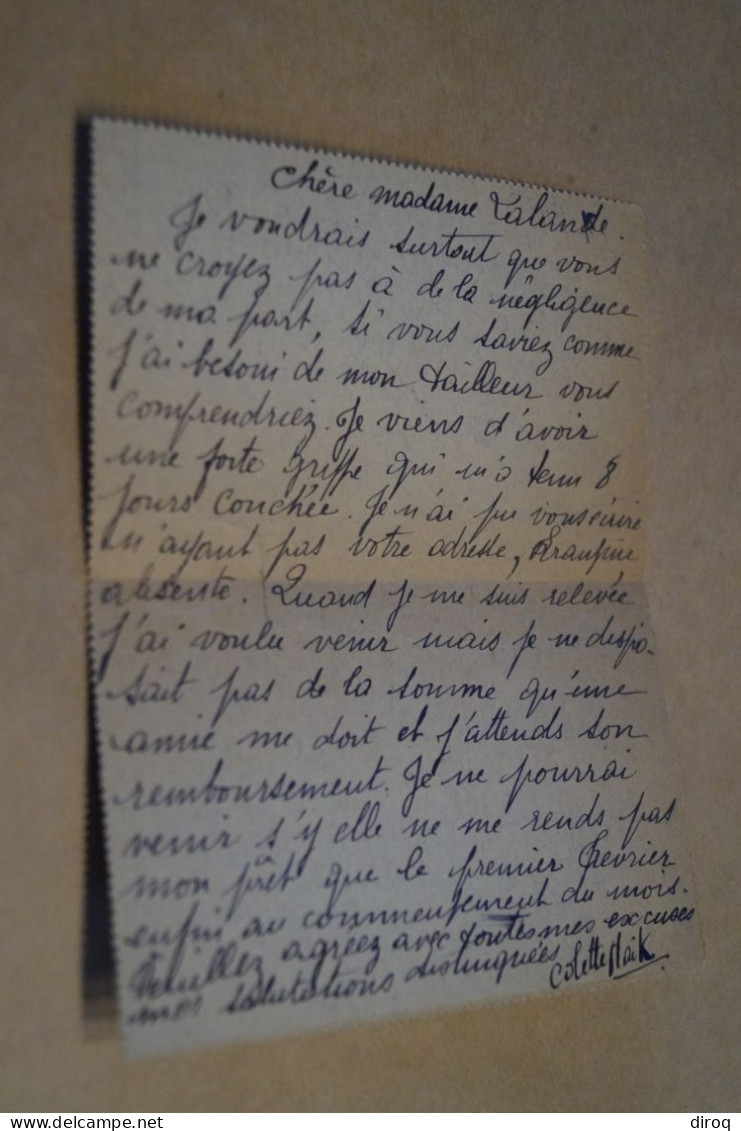 Chère madame Lalande.
Je voudrais surtout que vous
ne croyez pas à de la négligence
de ma part, si vous saviez comme
j'ai besoin de mon tailleur vous
comprendriez. Je viens d'avoir
une forte grippe qui m'a tenu 8
jours couchée. Je n'ai pu vous écrire
n'ayant pas votre adresse,
absente. Quand je me suis relevée
j'ai voulu venir mais je ne dispo-
sait pas de la somme qu'une
amie me doit et j'attends son
remboursement. Je ne pourrai
venir s'y elle ne me rends pas
mon prêt que le premier Fevrier
enfin au commensement du mois.
Veuillez agréez avec toutes mes excuses
mes salutations distinguées
Colette
delcampe.net
diroq